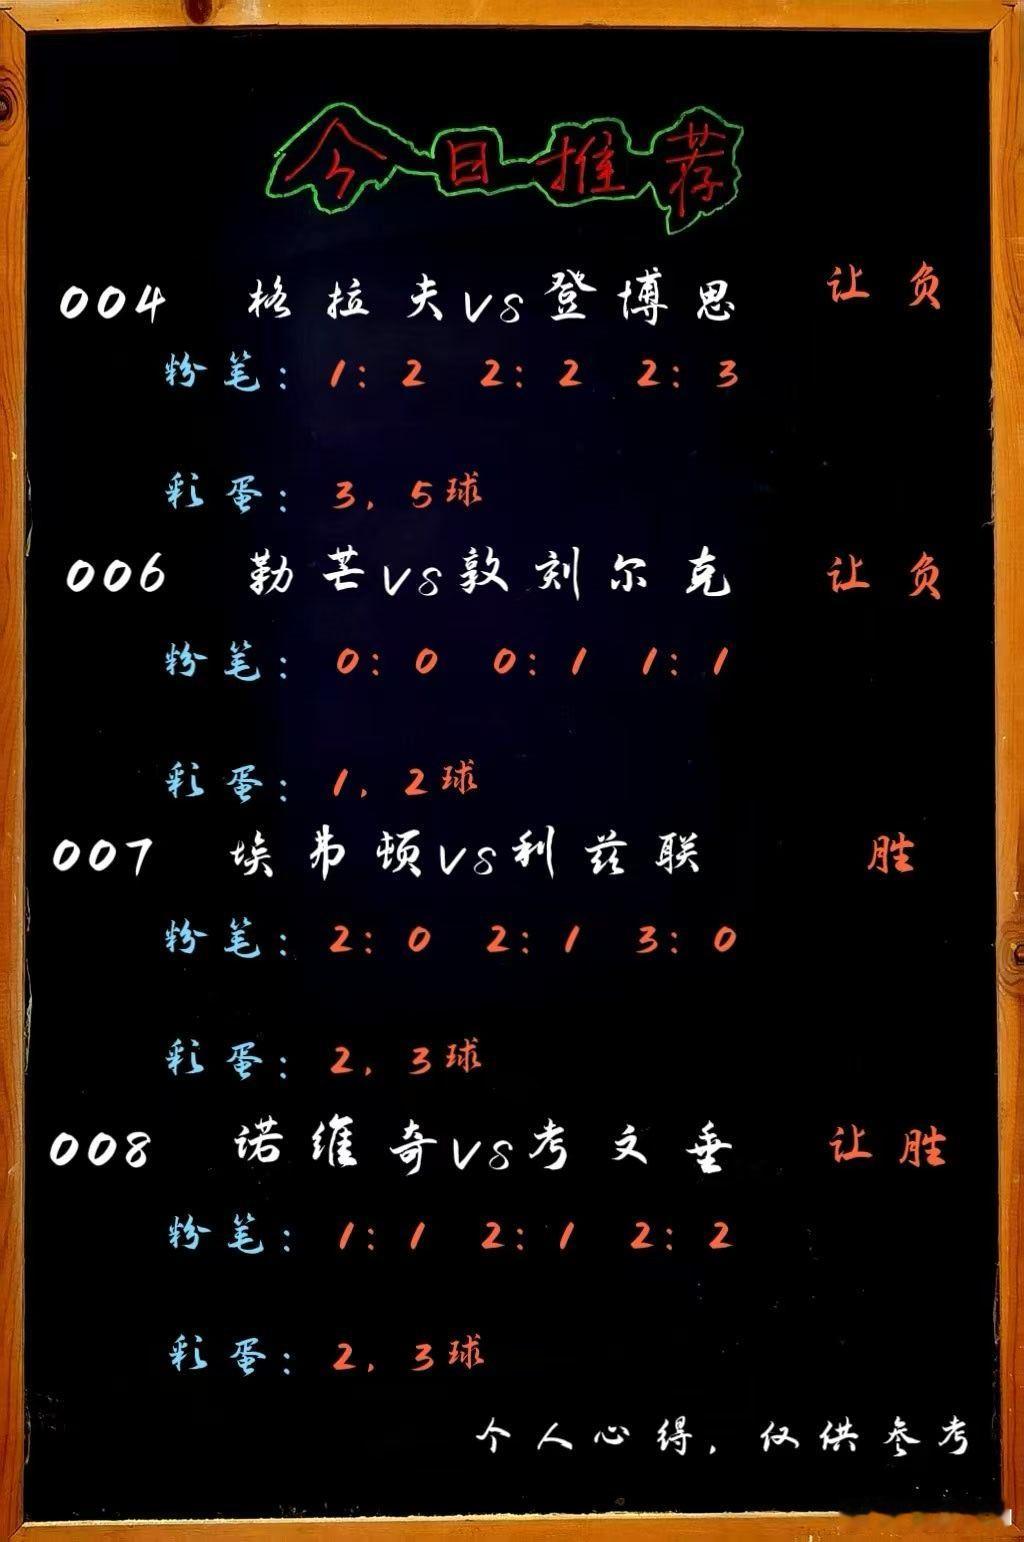 今日推荐
004 格拉夫vs登博思 让负
粉笔：1：2 2：2 2：3
彩蛋：3，5球
006 勒芒vs敦刻尔克 让负
粉笔：0：0 0：1 1：1
彩蛋：1，2球
007 埃弗顿vs利兹联 胜
粉笔：2：0 2：1 3：0
彩蛋：2，3球
008 诺维奇vs考文垂 让胜
粉笔：1：1 2：1 2：2
彩蛋：2，3球
个人心得，仅供参考